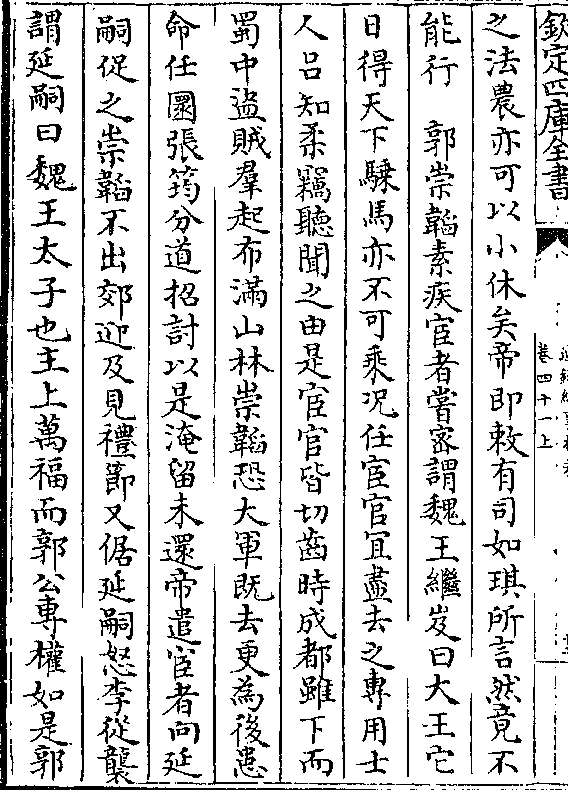 欽定四庫全書
卷四十一上
之法農亦可以小休矣帝即敕有司如琪所言然竟不
能行　郭崇韜素疾宦者嘗密謂魏王繼岌曰大王它
日得天下騬馬亦不可乘况任宦官宜盡去之專用士
人吕知柔竊聽聞之由是宦官皆切齒時成都雖下而
蜀中盗賊羣起布滿山林崇韜恐大軍既去更為後患
命任圜張筠分道招討以是淹留未還帝遣宦者向延
嗣促之崇韜不出郊迎及見禮節又倨延嗣怒李從襲
謂延嗣曰魏王太子也主上萬福而郭公專權如是郭